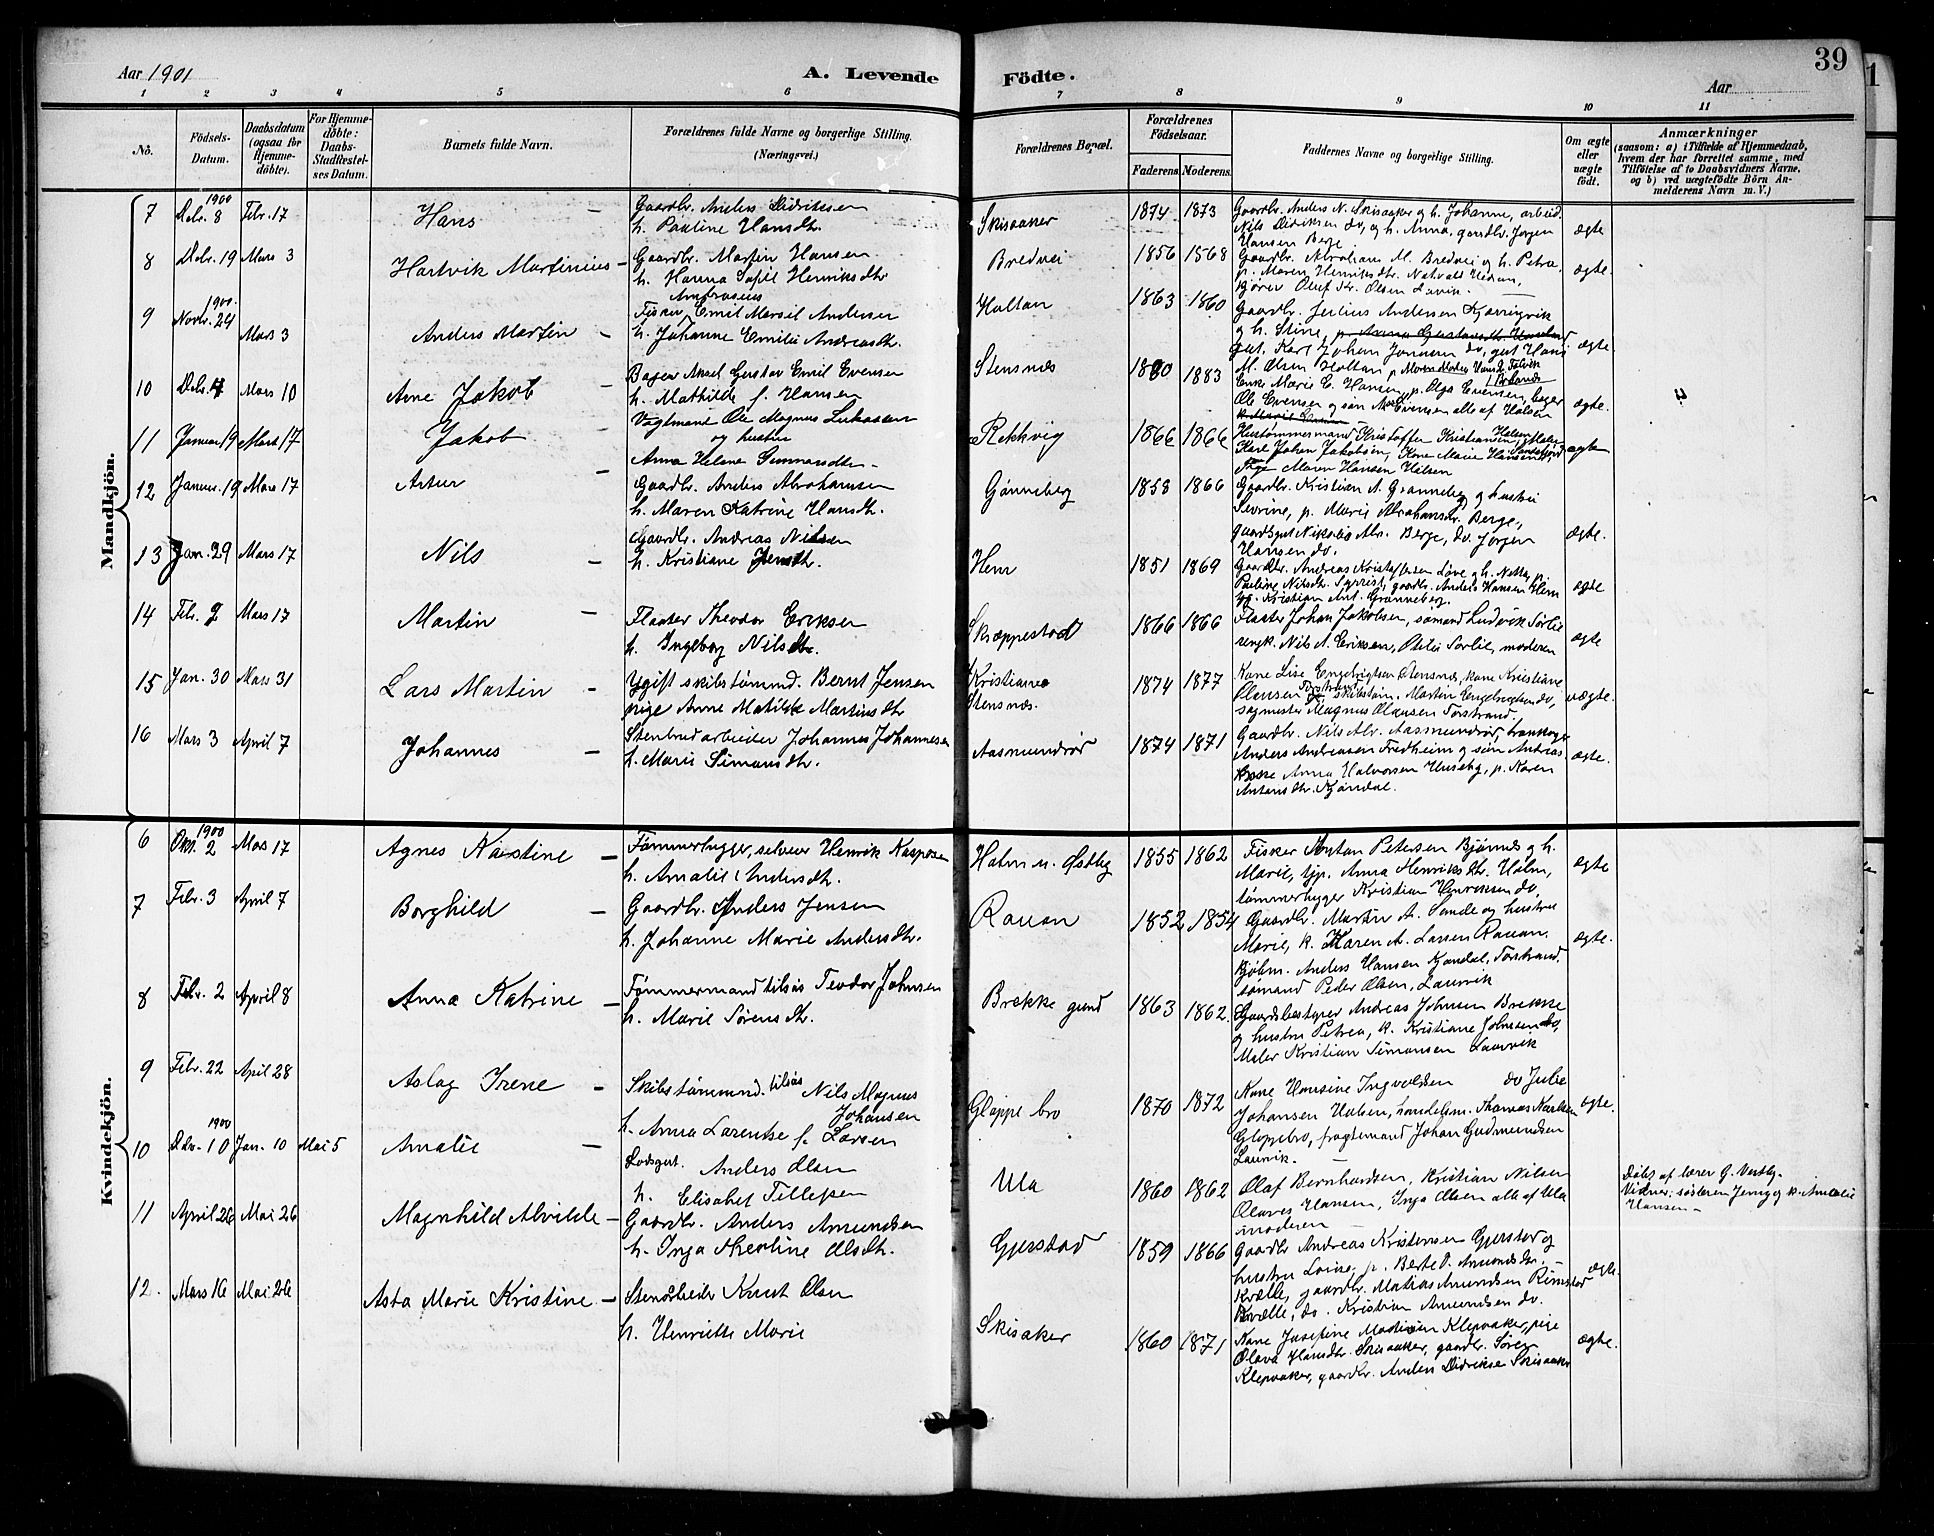 Aar 1901
A. Levende
Födte.
39
Aar
1 2 3 4 5 6 7 8 9 10 11
Nô.
Födsels-Datum.
Daabsdatum (ogsaa för Hjemme-döbte).
For Hjemme-döbte: Daabs-Stadfæstel-ses Datum.
Barnets fulde Navn.
Forældrenes fulde Navne og borgerlige Stilling. (Næringsvei.)
Forældrenes Bopæl.
Forældrenes Födselsaar.
Faderens. Moderens.
Faddernes Navne og borgerlige Stilling.
Om ægte eller uægte födt.
Anmærkninger
(saasom: a) i Tilfælde af Hjemmedaab, hvem der har forrettet samme, med Tilföielse af to Daabsvidners Navne, og b) ved uægtefödte Börn An-melderens Navn m. V.)
Mandkjön.
7 1900 Dcbr. 8 Febr. 17 Hans –
Gaardbr. Anders Didriksen
h. Pauline Hansdtr.
Skisaaker 1874 1873
Gaardbr. Anders N. Skisaaker og h. Johanne, arbeid.
Nils Didriksen do, og h. Anna, gaardbr. Jørgen
Hansen Berge
ægte
8 Dcbr. 19 Mars 3 Hartvik Martinius –
Gaardbr. Martin Hansen
h. Hanna Sofie Henriksdtr
Bredvei 1856 1568
Gaardbr. Abraham M. Bredvei og h. Petra,
p. Maren Henriksdtr.
Oluf Kr. Olsen
ægte.
9 1900. Novbr. 24 Mars 3 Anders Martin –
Ambrosius
Fisker Emil Marsil Andersen
h. Johanne Emilie Andreasdtr.
Holtan 1863 1860
Gaardbr. Julius Andersen Kjærringvik
og h. Stine,
gut. Karl Johan Jonsen do, gut Hans
M. Olsen Holtan
ægte.
10 Dcbr. 4 Mars 10 Arne Jakob –
Bager Aksel Gustav Emil Evensen
h. Mathilde f. Hansen
Stensnæs 1880 1883
Enke Marie C. Hansen, p. Olga Evensen, bager
Ole Evensen og søn Evensen alle af Halsen
ægte.
11 Januar 19 Mars 17 Jakob –
Vagtmand Ole Magnus Lukassen
og hustru
Anna Helene Gunnarsdtr –
Rekkvig 1866 1866
Hustømmermand Kristoffer Kristiansen, Halsen, Maler
Karl Johan Jakobsen, Kone Marie Hansen
Pige Maren Hansen Halsen
ægte
12 Januar. 19 Mars 17 Artur –
Gaardbr. Anders Abrahamsen
h. Maren Katrine Hansdtr.
Gønneberg 1858 1866
Gaardbr. Kristian A. Grønneberg og hustru
Severine, p. Marie Abrahamsdtr. Berge,
gaardsgut Nikolai Abr. Berge, do. Jørgen
Hansen do.
ægte.
13 Jan. 29 Mars 17 Nils –
Gaardbr. Andreas Nilsen
h. Kristiane Jensdtr.
Hem 1851 1869
Gaardbr. Andreas Kristoffersen Løve og h. Netta, p.
Pauline Nilsdtr. Syrrist, gaardbr. Anders Hansen Hem
Kristian Ant. Grønneberg.
ægte
14 Feb. 2 Mars 17 Martin –
Flaater Theodor Eriksen
h. Ingeborg Nilsdtr.
Skreppestad 1866 1866
Flaater Johan Jakobsen, sømand Ludvik Sørlie
ungk. Nils A. Eriksen, Otilie Sørlie, moderen
ægte
15 Jan. 30 Mars 31 Lars Martin –
Ugift skibstømmd. Bernt Jensen
pige Anne Matilde Martinsdtr
Kristiane
Stensnæs. 1874 1877
Kone Lise Engebrigtsen Stensnæs, kone Kristiane
Olausen Torstrand, skibstøm. Martin Engebregtsen do,
sagmester Magnus Olausen Torstrand.
uægte.
16 Mars 3 April 7 Johannes –
Stenbrudarbeider Johannes Johannesen
h. Marie Simonsdtr.
Aasmundrød 1874 1871
Gaardbr. Nils Abr. Aasmundrød,
Anders Andreassen Fredheim og søn Andreas
Anna Halvorsen Huseby, p. Karen
Antonsdtr. Kjøndal.
ægte.
Kvindekjön.
6 1900 Okt. 2 Mars 17 Agnes Kristine –
Tømmerhugger, selveier Henrik Kaspersen
h. Amalie Andersdtr.
Holm u. Østby 1855 1862
Fisker Anton Petersen Bjønnes og h.
Marie, tjp. Anna Henriksdtr. Holm,
tømmerhugger Kristian Henriksen do.
ægte
7 Febr. 3 April 7 Borghild –
Gaardbr. Anders Jensen
h. Johanne Marie Andersdtr.
Rauan 1852 1854
Gaardbr. Martin A. Sunde og hustru
Marie, k. Karen A. Larsen Rauan.
kjøbm. Anders Hansen Kjøndal, Torstrand.
sømand Peder Olsen, Laurvik
ægte.
8 Febr. 2 April 8 Anna Katrine –
Tømmermand tilsjøs Teodor Johnsen
h. Marie Sørensdtr.
Brekke grund 1863 1862.
Gaardsbestyrer Andreas Johnsen Brekke
og hustru Petrea, k. Kristiane Johnsen do,
Maler Kristian Simonsen Laurvik
9 Febr. 22 April 28 Aslag Irene –
Skibstømmd. tilsjøs Nils Magnus
Johansen
h. Anna Larentse f. Larsen
Gloppe bro 1870 1872
Kone Hansine Ingvoldsen do Julie
Johansen Halsen, handelsm. Thomas Karlsen
Gloppebro, fragtemand Johan Gudmundsen
Laurvik. –
ægte.
10 1900 Dcbr. 10 Jan. 10 Mai 5 Amalie –
Lodsgut. Anders Olsen
h. Elisabet Tillefsen
Ula 1860 1862
Olaf Bernhardsen, Kristian Nilsen
Olaves Hansen, Inga Olsen alle af Ula
moderen –
Døbt af lærer G. Vestby.
Vidner: søsteren Jenny og k. Amalie
Hansen –
11 April 26 Mai 26 Magnhild Alvilde –
Gaardbr. Anders Amundsen
h. Inga Theoline Olsdtr.
Gjerstad 1859 1866
Gaardbr Andreas Kristensen Gjerstad og
hustru Louise, p. Berte D. Amundsdtr. –
Kvælle, gaardbr. Matias Amundsen Rimstad
Kvælle, do. Kristian Amundsen do.
ægte.
12. Mars 16 Mai 26 Asta Marie Kristine –
Stenarbeider Knut Olsen
h. Henriette Marie
Skisaker 1860 1871
Kone Josefine Madsen Klepaaker, pige
Olava Hansdtr. Skisaaker, gaardbr. Søren
Klepaaker, gaardbr. Anders Didriksen Skisaaker
ægte.